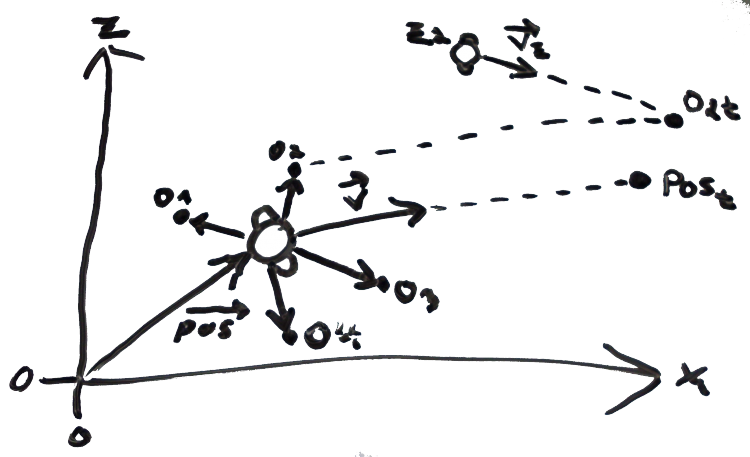 Z
E2 V E
O2t
O2
V
Post
O1
O3
pos
O4
O X
O